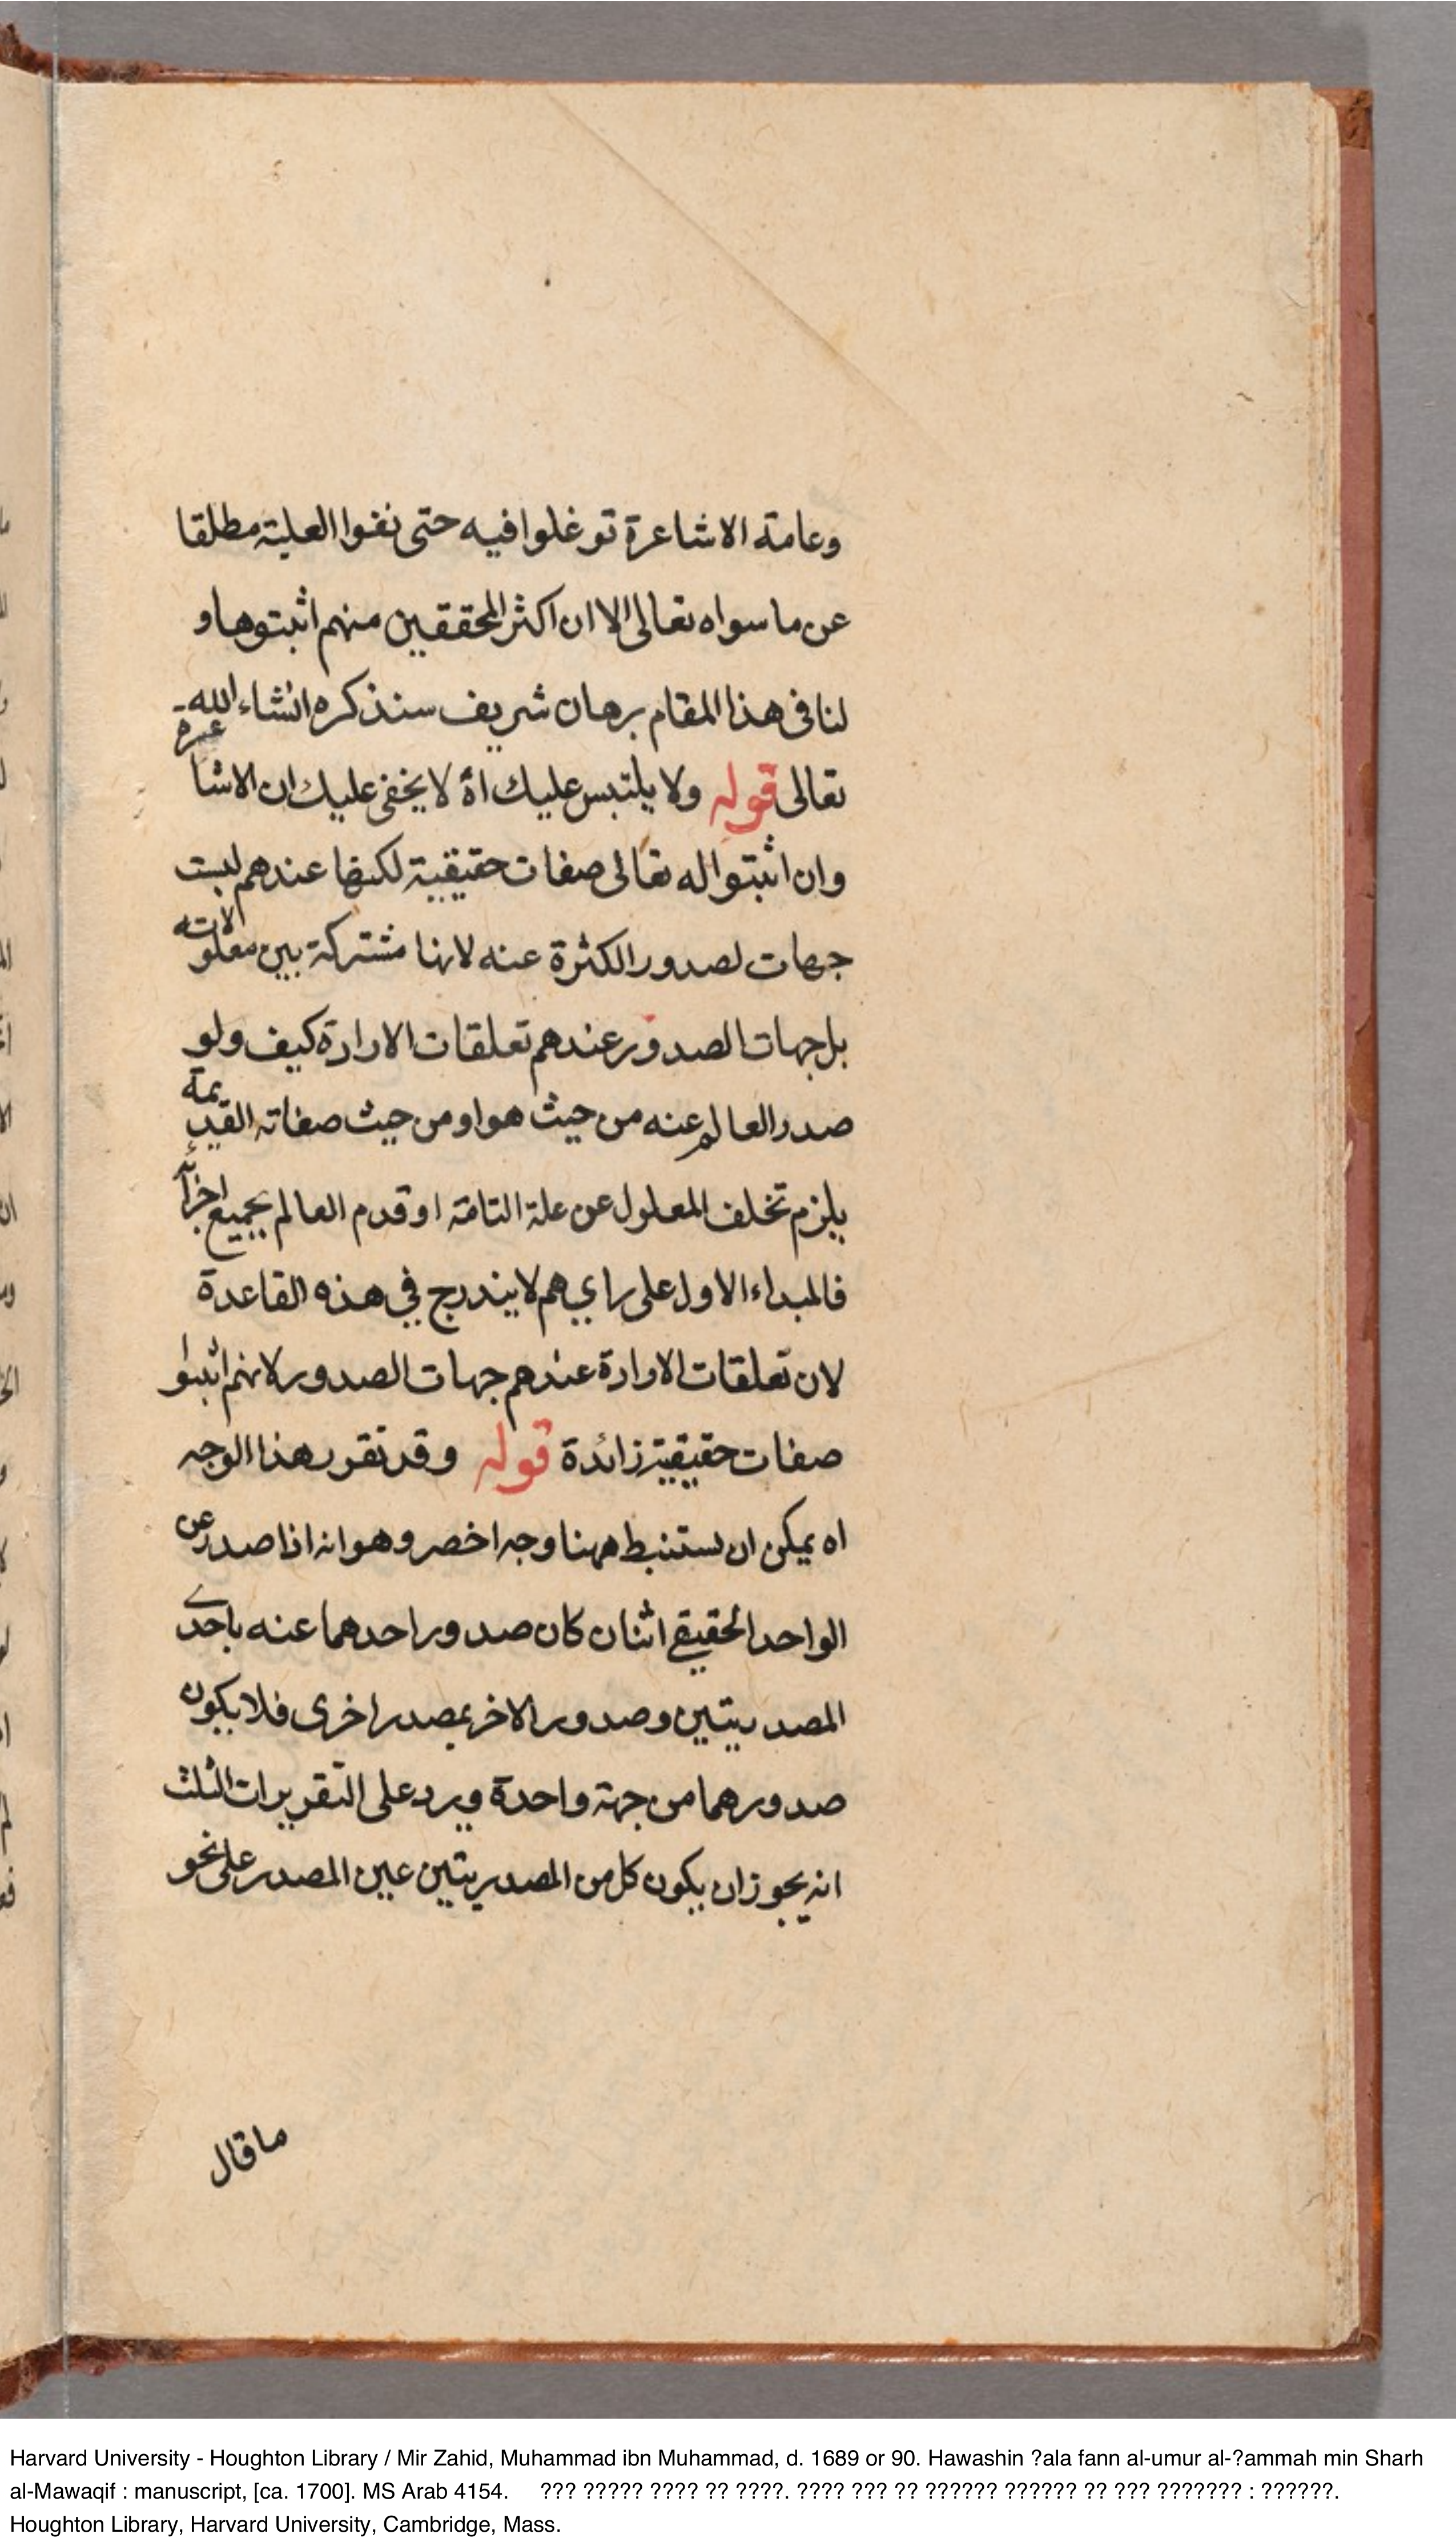 وعامة الاشاعرة توغلوا فيه حتى نفوا العلية مطلقا
عن ما سواه تعالى الا ان اكثر المحققين منهم اثبتوها و
لنا فى هذا المقام برهان شريف سنذكره انشاء الله
تعالى قوله ولا يلتبس عليك اه لا يخفى عليك ان الاشاعرة
وان اثبتوا له تعالى صفات حقيقية لكنها عندهم ليست
جهات لصدور الكثرة عنه لانها مشتركة بين معلولاته
بل جهات الصدور عندهم تعلقات الارادة كيف ولو
صدر العالم عنه من حيث هو او من حيث صفاته القديمة
يلزم تخلف المعلول عن علة التامة او قدم العالم بجميع اجزائه
فالمبداء الاول على راي هم لا يندرج في هذه القاعدة
لان تعلقات الارادة عندهم جهات الصدور لانهم اثبتوا
صفات حقيقية زائدة قوله وقد تقرر هذا الوجه
اه يمكن ان يستنبط ههنا وجه اخصر وهو انه اذا صدر عن
الواحد الحقيقي اثنان كان صدور احدهما عنه باحدى
المصدريتين وصدور الاخر بمصدر اخرى فلا يكون
صدورهما من جهة واحدة ويرد على التقريرات الثلث
انه يجوز ان يكون كل من المصدريتين عين المصدر على نحو
ما قال
Harvard University - Houghton Library / Mir Zahid, Muhammad ibn Muhammad, d. 1689 or 90. Hawashin ?ala fann al-umur al-?ammah min Sharh
al-Mawaqif : manuscript, [ca. 1700]. MS Arab 4154. ??? ????? ???? ?? ????. ???? ??? ?? ?????? ?????? ?? ??? ??????? : ??????.
Houghton Library, Harvard University, Cambridge, Mass.